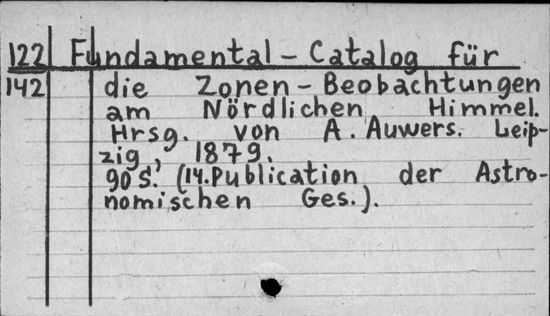 122 Fundamental-Catalog für
142 die Zonen-Beobachtungen
am Nördlichen Himmel.
Hrsg. von A. Auwers. Leip-
zig, 1879.
90 S. (14. Publication der Astro-
nomischen Ges.).